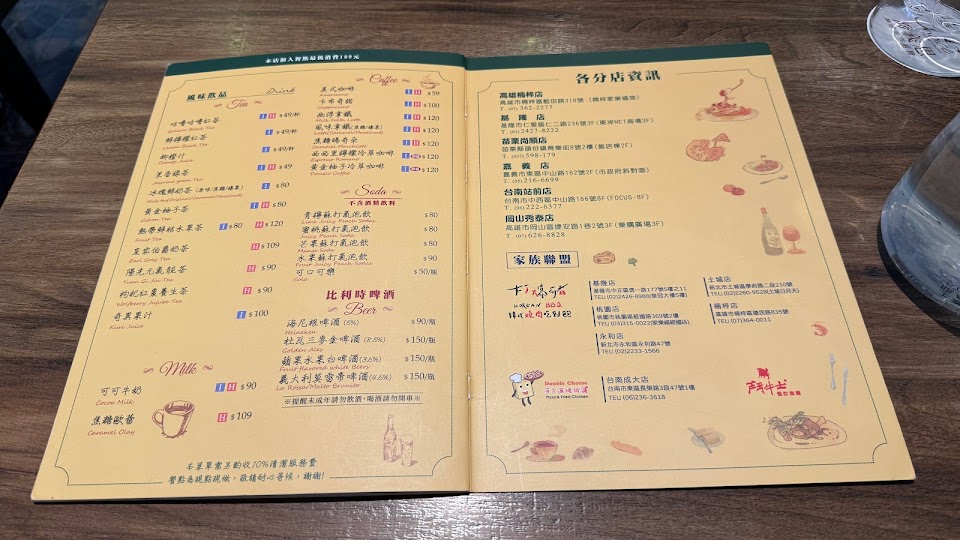 本店個人餐點最低消費100元
風味飲品
Drink
Tea
咕嚕咕嚕紅茶 I H $49/杯
Gulum Black Tea
鮮檸檬紅茶 I H $49/杯
Lemon Black Tea
柳橙汁 I $49/杯
Orange Juice
茉香綠茶 I H $49
Jasmine green Tea
冰塊鮮奶茶(原味/焦糖/榛果) I $80
黃金柚子茶 I H $80
Citron Tea
熱帶鮮桔水果茶 I $80 H $120
Fruit Tea
皇家伯爵奶茶 H $109
Earl Grey Tea
陽光元氣靚茶 H $90
Yuan Qi Jin Tea
枸杞紅棗養生茶 H $90
Wolfberry Jujube Tea
奇異果汁 I $100
Kiwi Juice
Milk
可可牛奶 I H $90
Cocoa Milk
焦糖歐蕾 H $109
Caramel Olay
Coffee
美式咖啡 I H $59
Americano
卡布奇諾 I H $100
Cappuccino
幽浮拿鐵 I H $120
風味拿鐵(焦糖/榛果) I H $120
焦糖瑪奇朵 I H $120
Caramel Macchiato
西西里檸檬冷萃咖啡 $120
Espresso Romano
黃金柚子冷萃咖啡 $120
Pomelo Coffee
Soda
不含酒精飲料
青檸蘇打氣泡飲 $80
Lime Juicy Peach Soda
蜜桃蘇打氣泡飲 $80
Juicy Peach Soda
芒果蘇打氣泡飲 $80
Mango Soda
水果蘇打氣泡飲 $90
Fruit Juicy Peach Soda
可口可樂 $50/瓶
Coke
比利時啤酒
Beer
海尼根啤酒 (5%) $90/瓶
Heineken
杜瓦三麥金啤酒 (8.5%) $150/瓶
Golden Ales
蘋果水果白啤酒(3.6%) $150/瓶
Fruit flavored white Beers
義大利莫雷蒂啤酒(4.6%) $150/瓶
La Rossa/Malto Brunito
※提醒未成年請勿飲酒,喝酒請勿開車※
本菜單需另酌收10%清潔服務費
餐點為現點現做,敬請耐心等候,謝謝!
各分店資訊
高雄楠梓店
高雄市楠梓區藍田路310號 (楠梓家樂福旁)
T. (07) 362-2277
基隆店
基隆市仁愛區仁二路236號3F(東岸NET廣場3F)
T. (02) 2427-8222
苗栗尚順店
苗栗縣頭份鎮育樂街8號2樓(飯店棟2F)
T. (037) 598-179
嘉義店
嘉義市東區中山路162號2F(市政府斜對面)
T. (05) 216-6699
台南站前店
台南市中西區中山路166號8F(FOCUS-8F)
T. (06) 222-6377
岡山秀泰店
高雄市岡山區捷安路1巷2號3F(樂購廣場3F)
T. (07) 626-8828
家族聯盟
BBQ
韓式燒肉吃到飽
基隆店
基隆市中正區信一路177號5樓之11
TEL(02)2426-8988(東冠大樓5樓)
土城店
新北市土城區學府路二段210號
TEL(02)2260-9528(土城日月光)
桃園店
桃園市桃園區經國路369號2樓
TEL (03)315-0022(家樂福經國店)
楠梓店
高雄市楠梓區建民路835號
TEL (07)364-0011
永和店
新北市永和區永利路47號
TEL (02)2233-1566
Double Cheese
Pizza & Fried Chicken
台南成大店
台南市東區長榮路3段47號1樓
TEL (06)236-3618